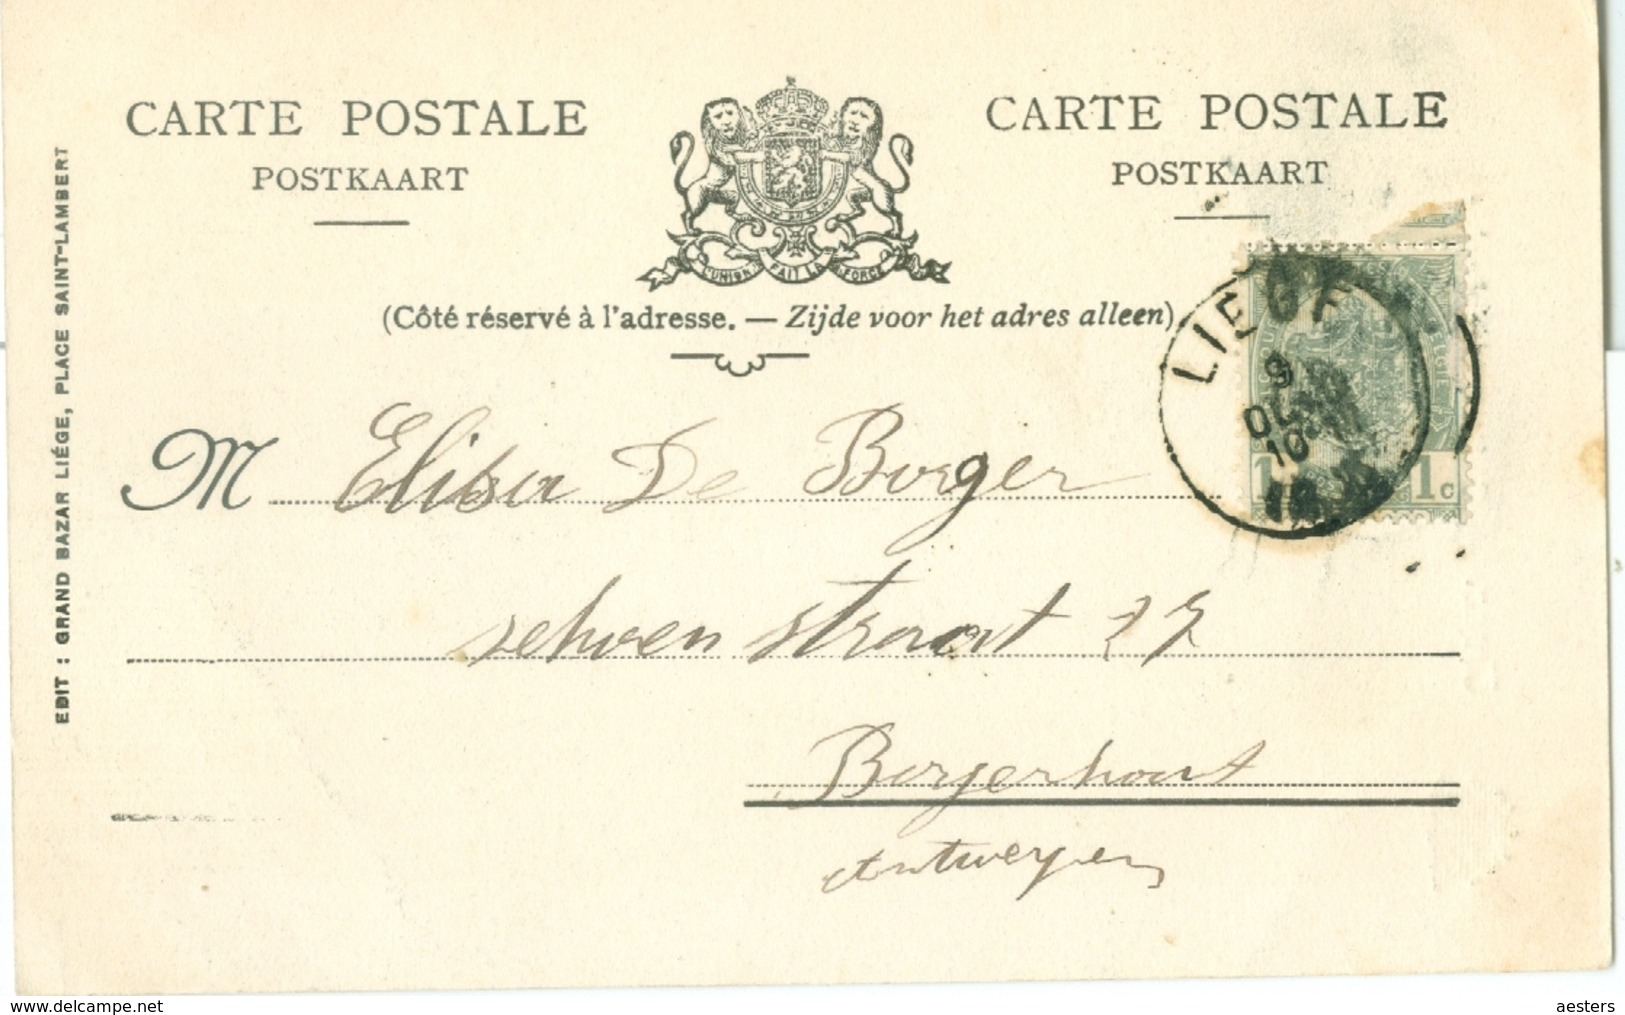 CARTE POSTALE
POSTKAART
CARTE POSTALE
POSTKAART
L'UNION FAIT LA FORCE
(Côté réservé à l'adresse. — Zijde voor het adres alleen)
LIEGE
9
10
1c
M Elisa De Borger
straat 27
Borgerhout
Antwerpen
EDIT : GRAND BAZAR LIÉGE, PLACE SAINT-LAMBERT
delcampe.net
aesters